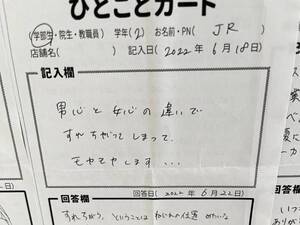 ひとことカード
学部生・院生・教職員) 学年(2) お名前・PN( JR )
店舗名( ) 記入日(2022年6月18日)
記入欄
男心と女心の違いで
すれちがってしまって、
モヤモヤします...
回答欄 回答日(2022年6月22日)
すれちがう、ということは